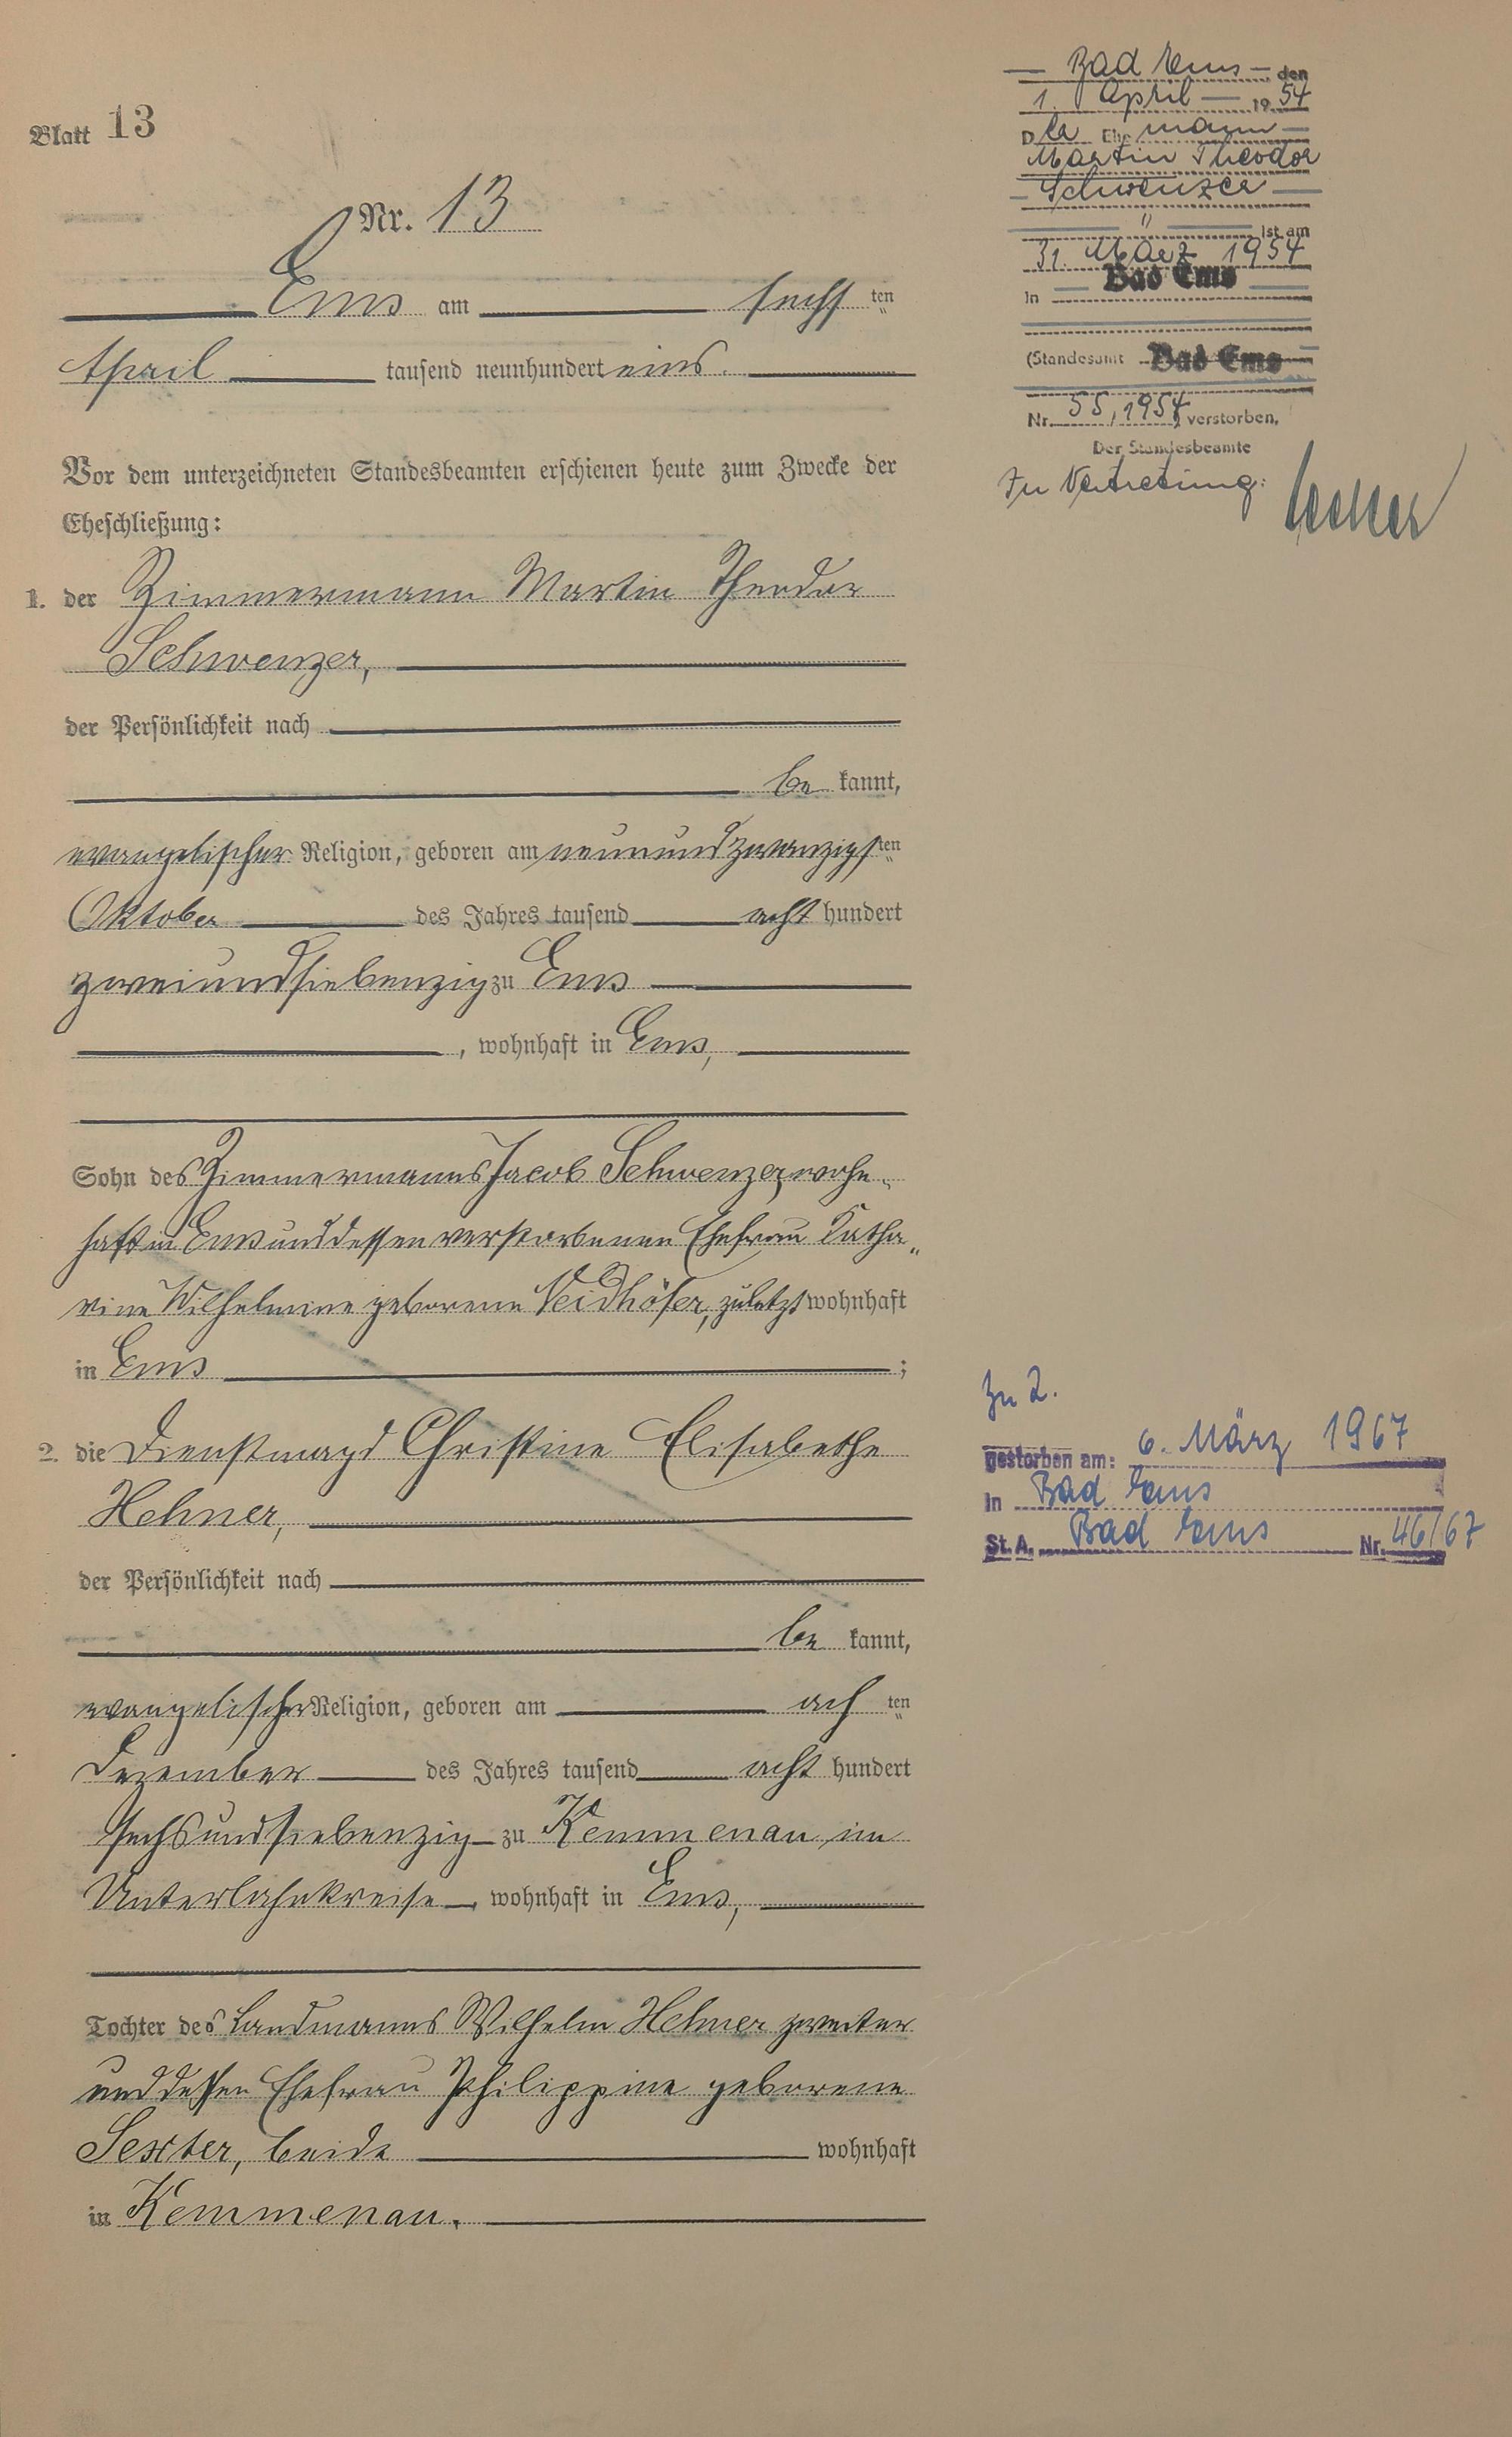 Blatt 13
Nr. 13
Ems am sechsten
April tausend neunhundert eins.
Vor dem unterzeichneten Standesbeamten erschienen heute zum Zwecke der
Eheschließung:
1. der Zimmermann Martin Theodor
Schwenzer,
der Persönlichkeit nach
be kannt,
evangelischer Religion, geboren am neunundzwanzigsten
Oktober des Jahres tausend acht hundert
zweiundsiebenzig zu Ems
, wohnhaft in Ems,
Sohn des Zimmermanns Jacob Schwenzer, wohn-
haft in Ems und dessen verstorbenen Ehefrau Katha-
rine Wilhelmine geborene Neidhöfer, zuletzt wohnhaft
in Ems ;
2. die Dienstmagd Christine Elisabethe
Hehner,
der Persönlichkeit nach
be kannt,
evangelischer Religion, geboren am achten
Dezember des Jahres tausend acht hundert
sechsundsiebenzig zu Kemmenau im
Unterlahnkreise, wohnhaft in Ems,
Tochter des Landmanns Wilhelm Hehner zweiter
und dessen Ehefrau Philippine geborene
Sexter, beide wohnhaft
in Kemmenau.
Bad Ems den
1. April 1954
Der Ehemann
Martin Theodor
Schwenzer
" ist am
31. März 1954
in Bad Ems
(Standesamt Bad Ems
Nr. 55/1954 verstorben.
Der Standesbeamte
In Vertretung:
Zu 2.
gestorben am: 6. März 1967
in Bad Ems
St. A. Bad Ems Nr. 46/67